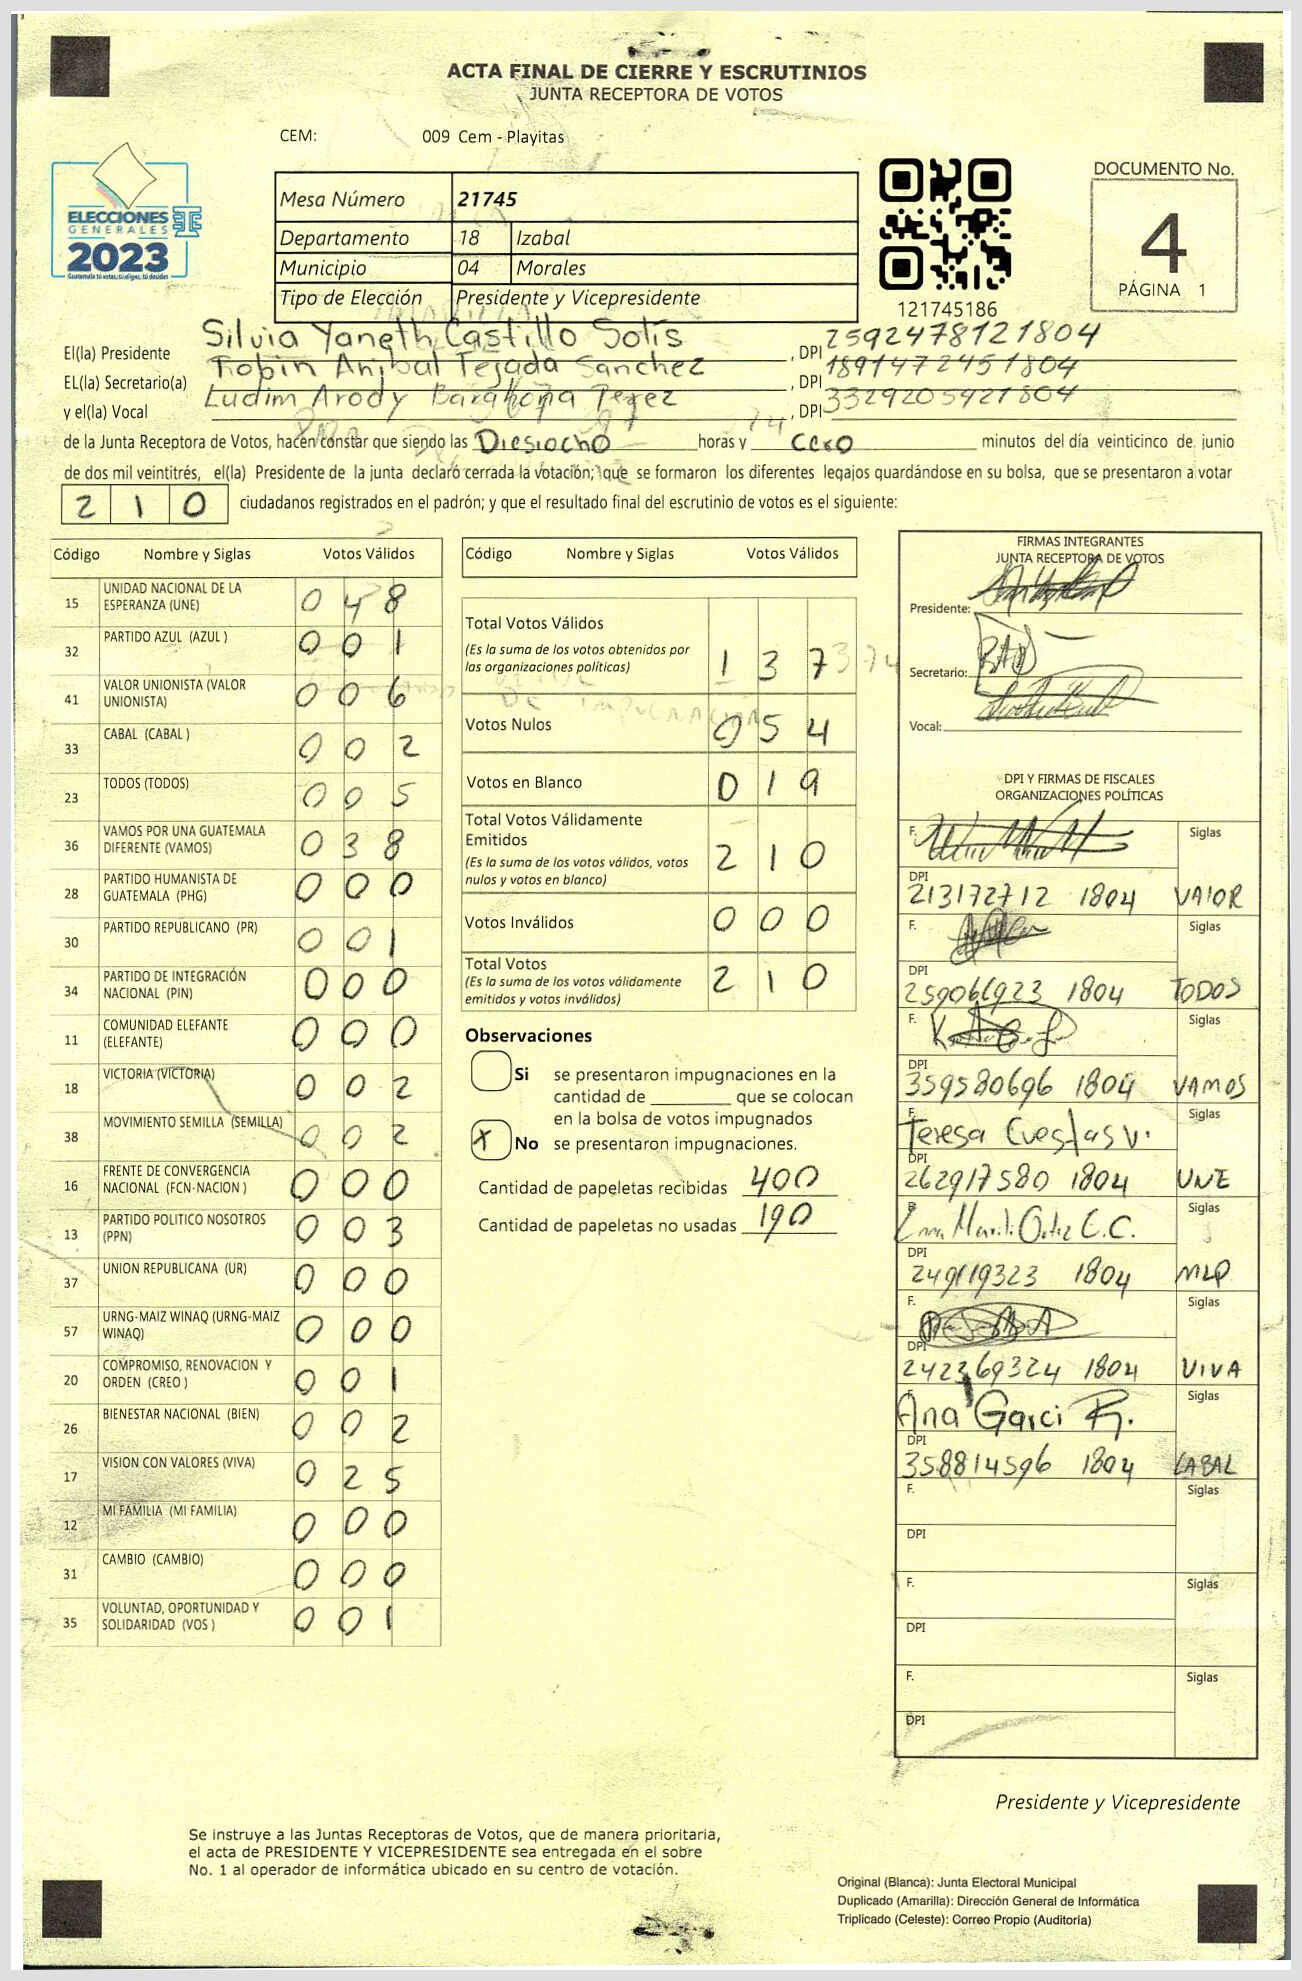 ACTA FINAL DE CIERRE Y ESCRUTINIOS
JUNTA RECEPTORA DE VOTOS
CEM: 009 Cem - Playitas
ELECCIONES
GENERALES
2023
Guatemala tú votas, tú eliges, tú decides
Mesa Número 21745
Departamento 18 Izabal
Municipio 04 Morales
Tipo de Elección Presidente y Vicepresidente
121745186
DOCUMENTO No.
4
PÁGINA 1
El(la) Presidente Silvia Yaneth Castillo Solis , DPI 2592478121804
EL(la) Secretario(a) Robin Anibal Tejada Sanchez , DPI 1891472451804
y el(la) Vocal Ludim Arody Barahona Perez , DPI 3329205921804
de la Junta Receptora de Votos, hacen constar que siendo las Diesiocho horas y Cero minutos del día veinticinco de junio
de dos mil veintitrés, el(la) Presidente de la junta declaró cerrada la votación; que se formaron los diferentes legajos guardándose en su bolsa, que se presentaron a votar
2 1 0 ciudadanos registrados en el padrón; y que el resultado final del escrutinio de votos es el siguiente:
Código Nombre y Siglas Votos Válidos
15 UNIDAD NACIONAL DE LA ESPERANZA (UNE) 0 4 8
32 PARTIDO AZUL (AZUL ) 0 0 1
41 VALOR UNIONISTA (VALOR UNIONISTA) 0 0 6
33 CABAL (CABAL ) 0 0 2
23 TODOS (TODOS) 0 0 5
36 VAMOS POR UNA GUATEMALA DIFERENTE (VAMOS) 0 3 8
28 PARTIDO HUMANISTA DE GUATEMALA (PHG) 0 0 0
30 PARTIDO REPUBLICANO (PR) 0 0 1
34 PARTIDO DE INTEGRACIÓN NACIONAL (PIN) 0 0 0
11 COMUNIDAD ELEFANTE (ELEFANTE) 0 0 0
18 VICTORIA (VICTORIA) 0 0 2
38 MOVIMIENTO SEMILLA (SEMILLA) 0 0 2
16 FRENTE DE CONVERGENCIA NACIONAL (FCN-NACION ) 0 0 0
13 PARTIDO POLITICO NOSOTROS (PPN) 0 0 3
37 UNION REPUBLICANA (UR) 0 0 0
57 URNG-MAIZ WINAQ (URNG-MAIZ WINAQ) 0 0 0
20 COMPROMISO, RENOVACION Y ORDEN (CREO ) 0 0 1
26 BIENESTAR NACIONAL (BIEN) 0 0 2
17 VISION CON VALORES (VIVA) 0 2 5
12 MI FAMILIA (MI FAMILIA) 0 0 0
31 CAMBIO (CAMBIO) 0 0 0
35 VOLUNTAD, OPORTUNIDAD Y SOLIDARIDAD (VOS ) 0 0 1
Código Nombre y Siglas Votos Válidos
Total Votos Válidos
(Es la suma de los votos obtenidos por
las organizaciones políticas) 1 3 7
Votos Nulos 0 5 4
Votos en Blanco 0 1 9
Total Votos Válidamente
Emitidos
(Es la suma de los votos válidos, votos
nulos y votos en blanco) 2 1 0
Votos Inválidos 0 0 0
Total Votos
(Es la suma de los votos válidamente
emitidos y votos inválidos) 2 1 0
Observaciones
Si se presentaron impugnaciones en la
cantidad de ________ que se colocan
en la bolsa de votos impugnados
X No se presentaron impugnaciones.
Cantidad de papeletas recibidas 400
Cantidad de papeletas no usadas 190
FIRMAS INTEGRANTES
JUNTA RECEPTORA DE VOTOS
Presidente:
Secretario:
Vocal:
DPI Y FIRMAS DE FISCALES
ORGANIZACIONES POLÍTICAS
F. Siglas
DPI 213172712 1804 VALOR
F. Siglas
DPI 259066923 1804 TODOS
F. Siglas
DPI 359580696 1804 VAMOS
F. Teresa Cuestas V. Siglas
DPI 262917580 1804 UNE
F. Siglas
DPI 249119323 1804 MLP
F. Siglas
DPI 242269324 1804 VIVA
F. Ana Garci R. Siglas
DPI 358814596 1804 CABAL
F. Siglas
DPI
F. Siglas
DPI
F. Siglas
DPI
Presidente y Vicepresidente
Se instruye a las Juntas Receptoras de Votos, que de manera prioritaria,
el acta de PRESIDENTE Y VICEPRESIDENTE sea entregada en el sobre
No. 1 al operador de informática ubicado en su centro de votación.
Original (Blanca): Junta Electoral Municipal
Duplicado (Amarilla): Dirección General de Informática
Triplicado (Celeste): Correo Propio (Auditoría)